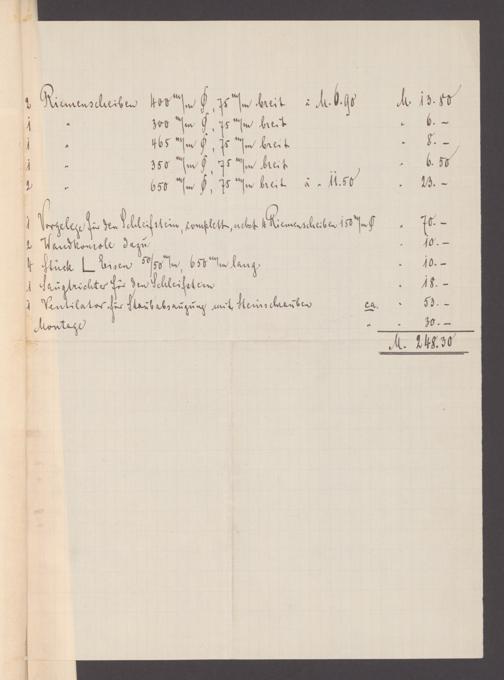 2 Riemenscheiben 400 m/m ∅, 75 m/m breit à M. 6.90 M. 13.80
1 " 300 m/m ∅, 75 m/m breit " 6.–
1 " 465 m/m ∅, 75 m/m breit " 8.–
1 " 350 m/m ∅, 75 m/m breit " 6.50
2 " 650 m/m ∅, 75 m/m breit à " 11.50 " 23.–
1 Vorgelege für den Schleifstein, complett, nebst 4 Riemenscheiben 150 m/m ∅ " 70.–
2 Wandkonsole dazu " 10.–
4 Stück L Eisen 50/50 m/m, 650 m/m lang. " 10.–
1 Saugtrichter für den Schleifstein " 18.–
1 Ventilator für Staubabsaugung mit Steinschrauben ca. " 53.–
Montage " " 30.–
M. 248.30